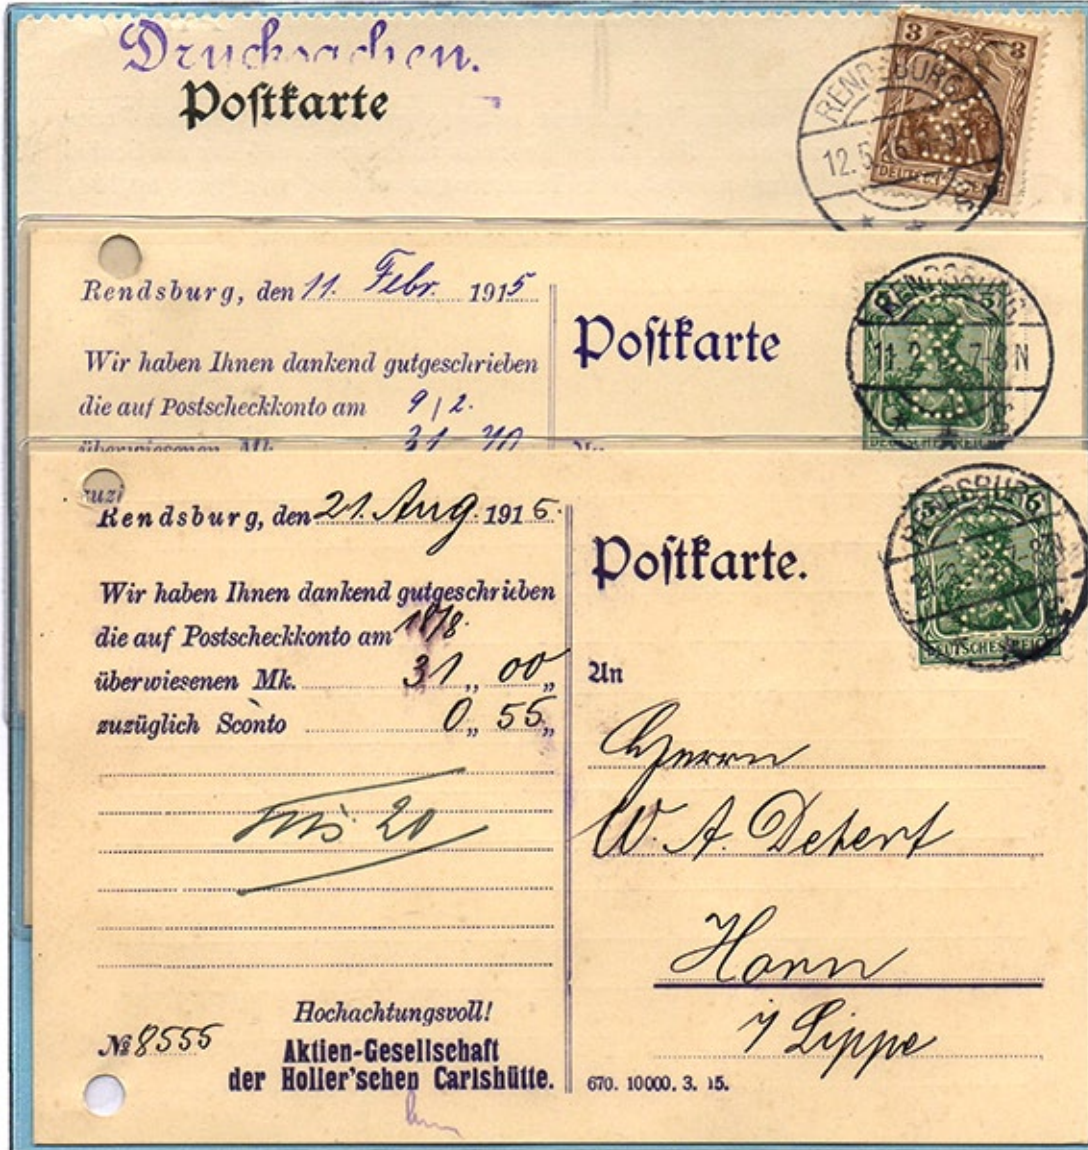 Drucksachen.
Postkarte
3 3
RENDSBURG
12.5.
DEUTSCHES REICH
Rendsburg, den 11. Febr. 1915
Wir haben Ihnen dankend gutgeschrieben
die auf Postscheckkonto am 9/2.
überwiesenen Mk. 31 70
Postkarte
RENDSBURG
11.2. 7-8N
DEUTSCHES REICH
Rendsburg, den 21. Aug. 1915.
Wir haben Ihnen dankend gutgeschrieben
die auf Postscheckkonto am 18/8.
überwiesenen Mk. 31 „ 00 „
zuzüglich Sconto 0 „ 55 „
20
Hochachtungsvoll!
№ 8555
Aktien-Gesellschaft
der Holler'schen Carlshütte.
Postkarte.
RENDSBURG
DEUTSCHES REICH
An
Herrn
W. A. Detert
Horn
i/ Lippe
670. 10000. 3. 15.